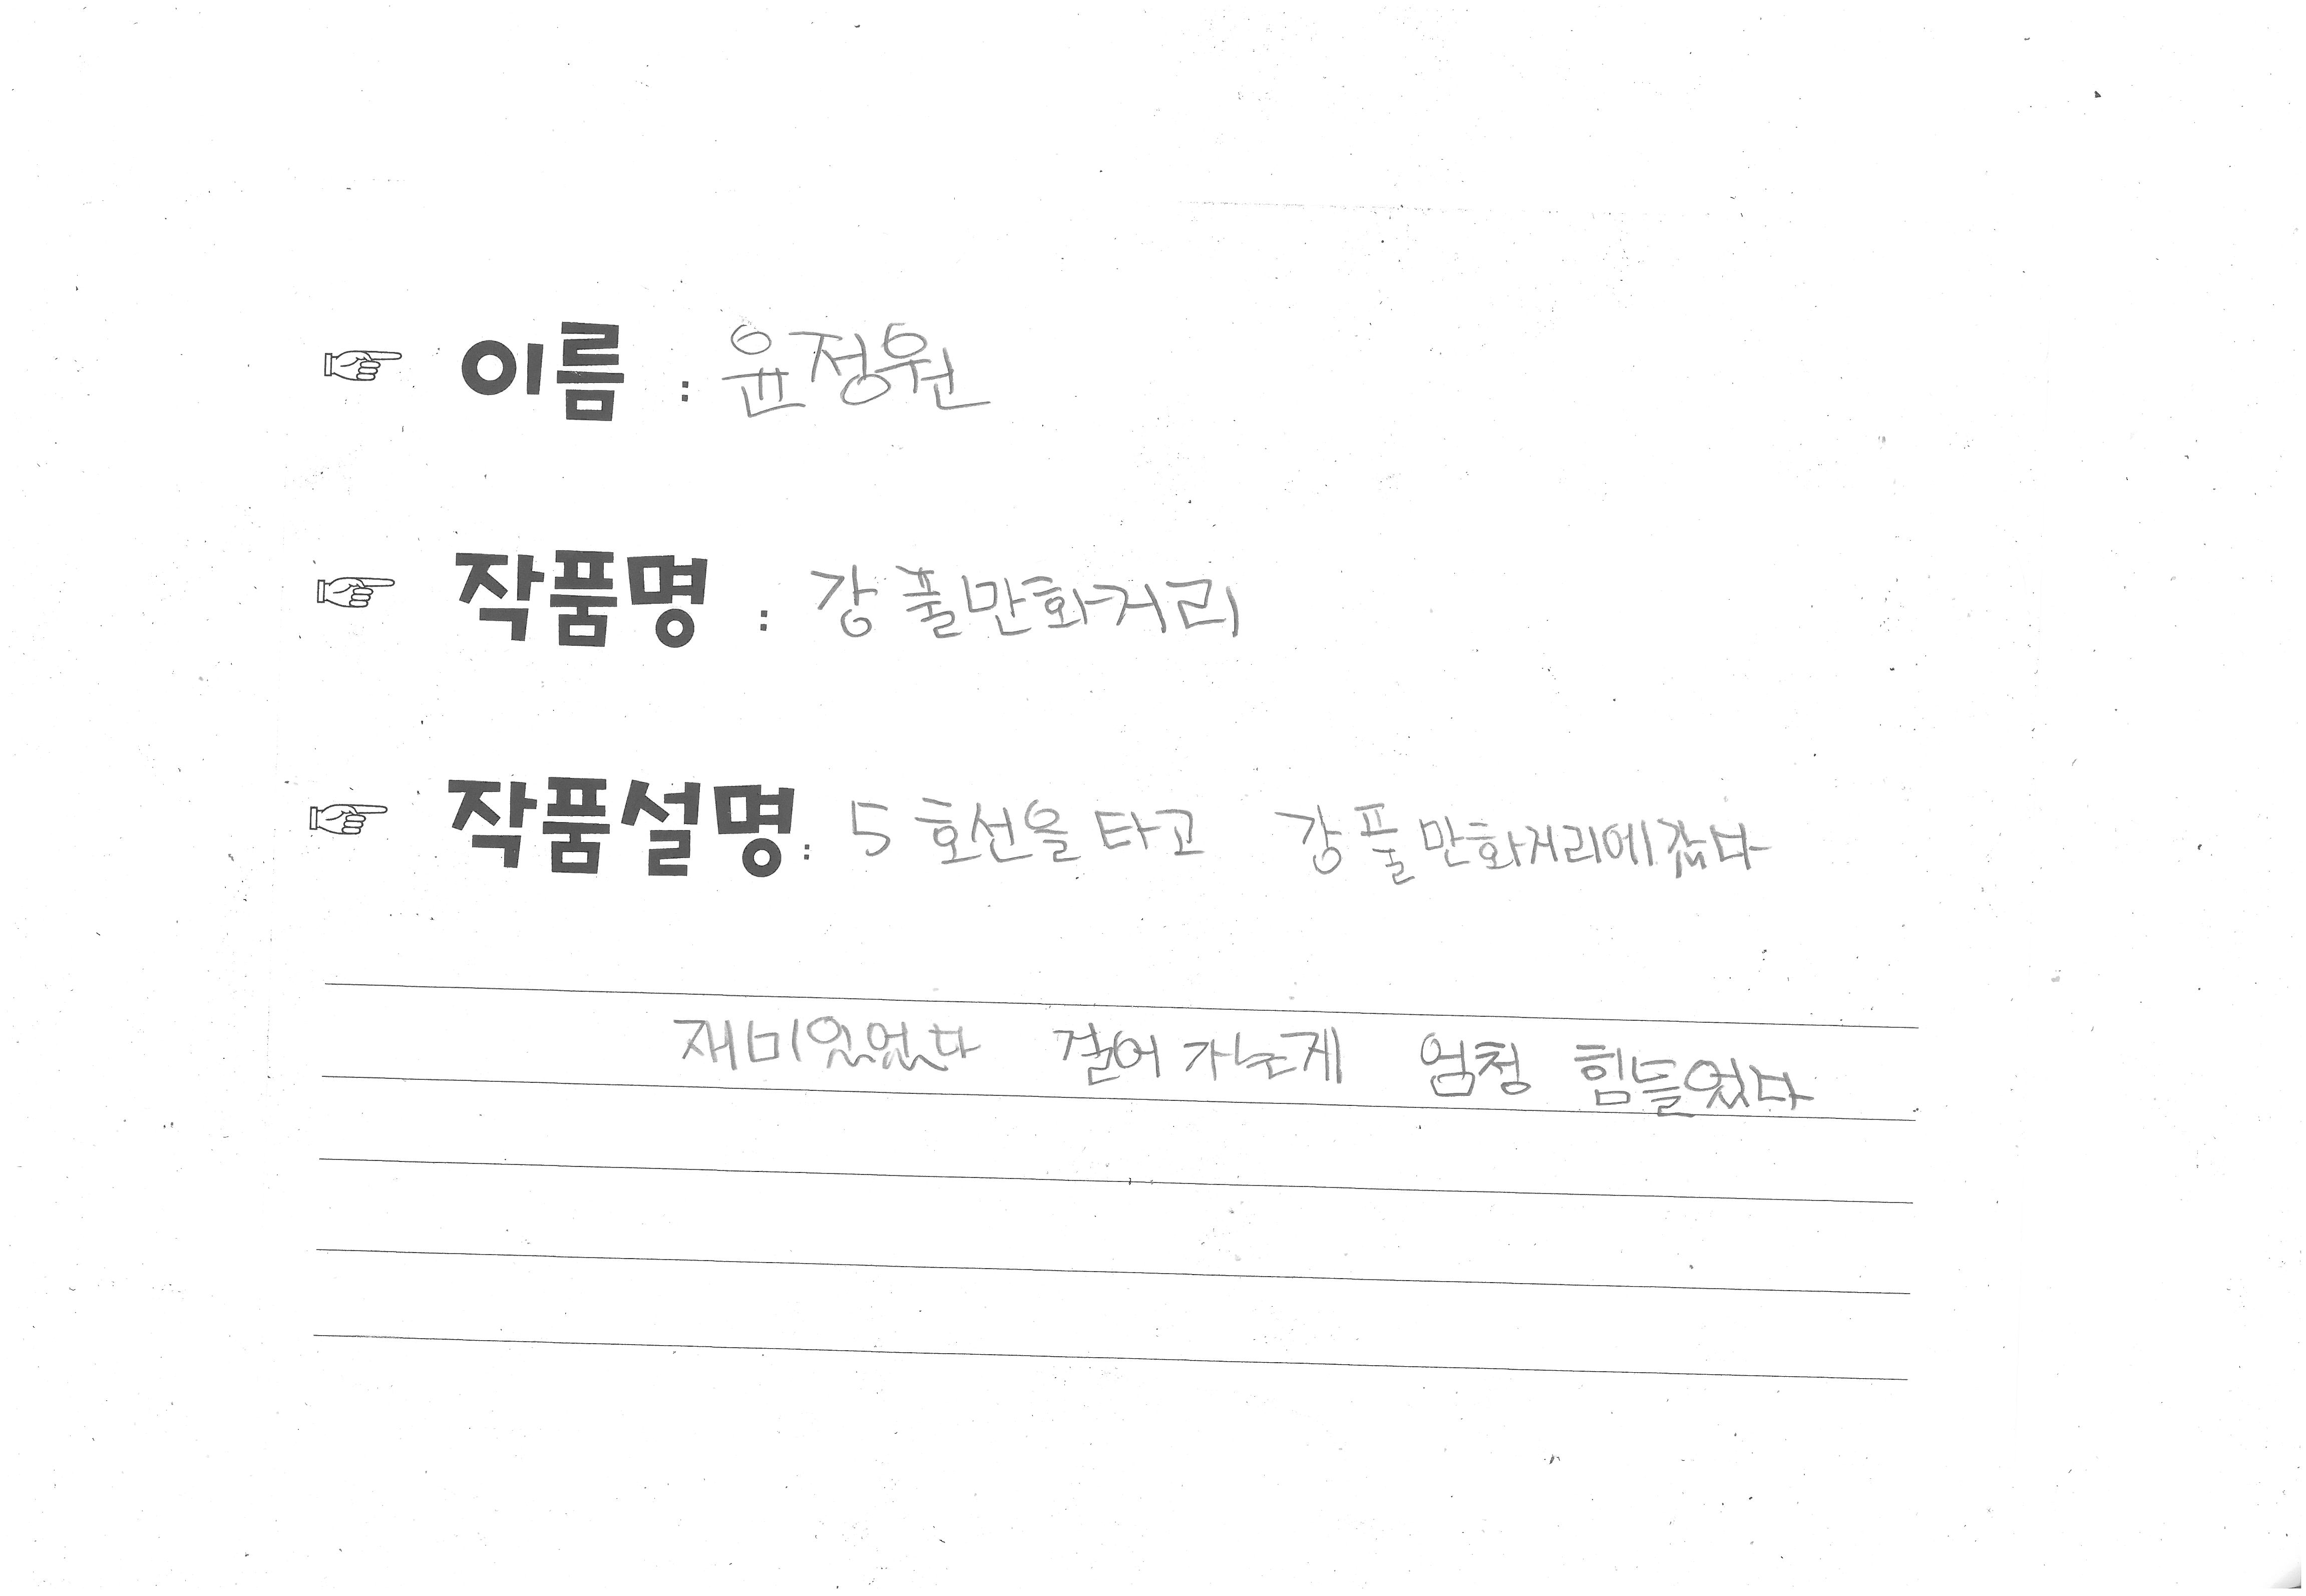 ☞ 이름 : 윤정원
☞ 작품명 : 강풀만화거리
☞ 작품설명: 5호선을 타고 강풀만화거리에갔다
재미있었다 걸어가는게 엄청 힘들었다